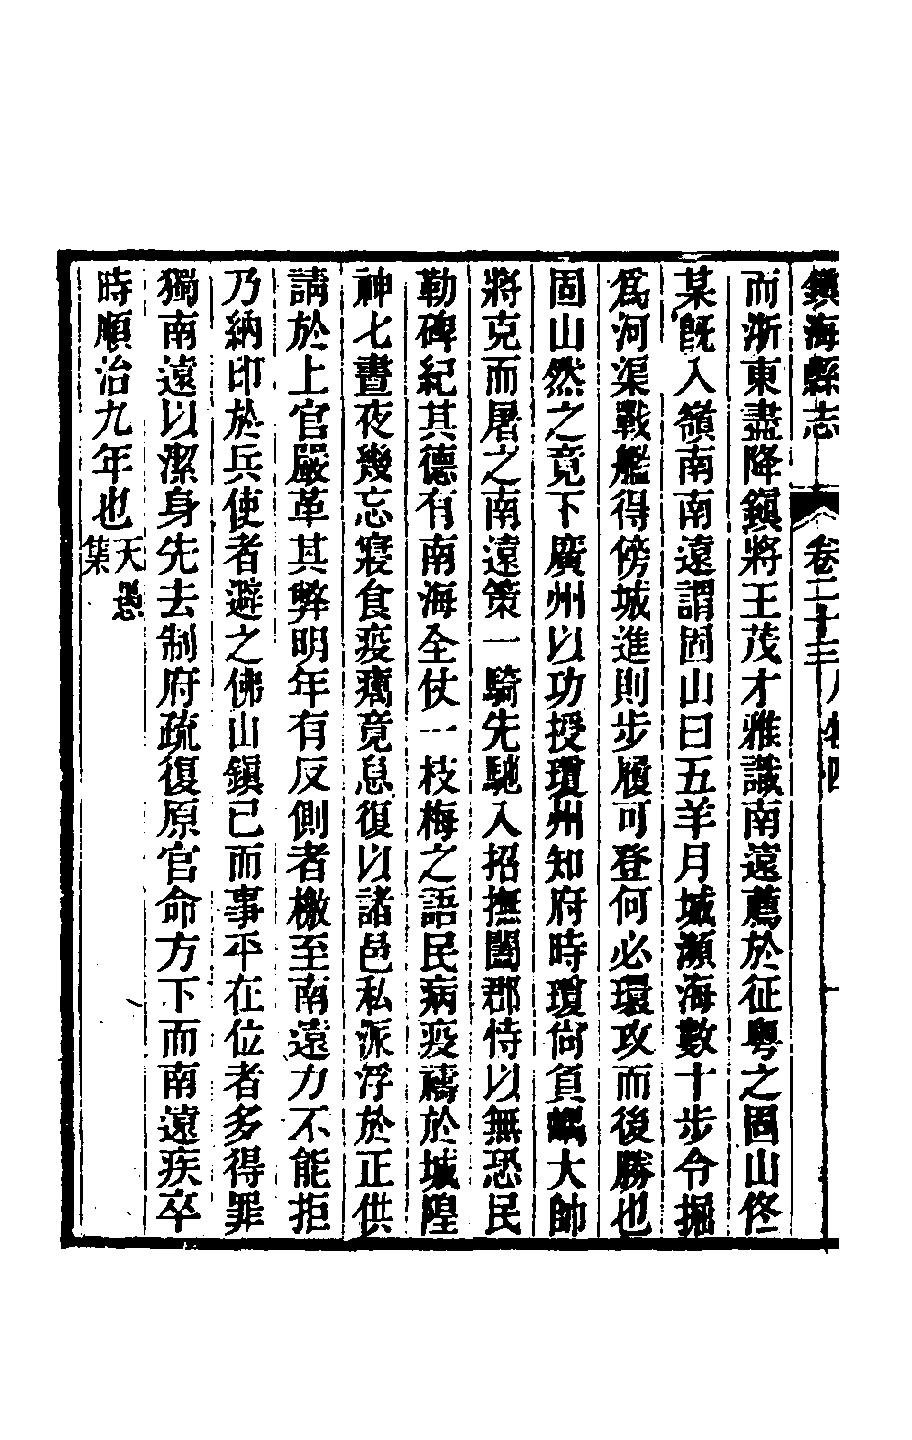 鎮海縣志 卷二十三 人物四
而浙東盡降鎮將王茂才雅識南遠薦於征粤之固山佟
某旣入嶺南南遠謂固山曰五羊月城瀕海數十步令掘
爲河渠戰艦得傍城進則步履可登何必環攻而後勝也
固山然之竟下廣州以功授瓊州知府時瓊尙負嵎大帥
將克而屠之南遠策一騎先馳入招撫闔郡恃以無恐民
勒碑紀其德有南海全仗一枝梅之語民病疫禱於城隍
神七晝夜幾忘寢食疫癘竟息復以諸邑私派浮於正供
請於上官嚴革其弊明年有反側者檄至南遠力不能拒
乃納印於兵使者避之佛山鎮已而事平在位者多得罪
獨南遠以潔身先去制府疏復原官命方下而南遠疾卒
時順治九年也 天愚集